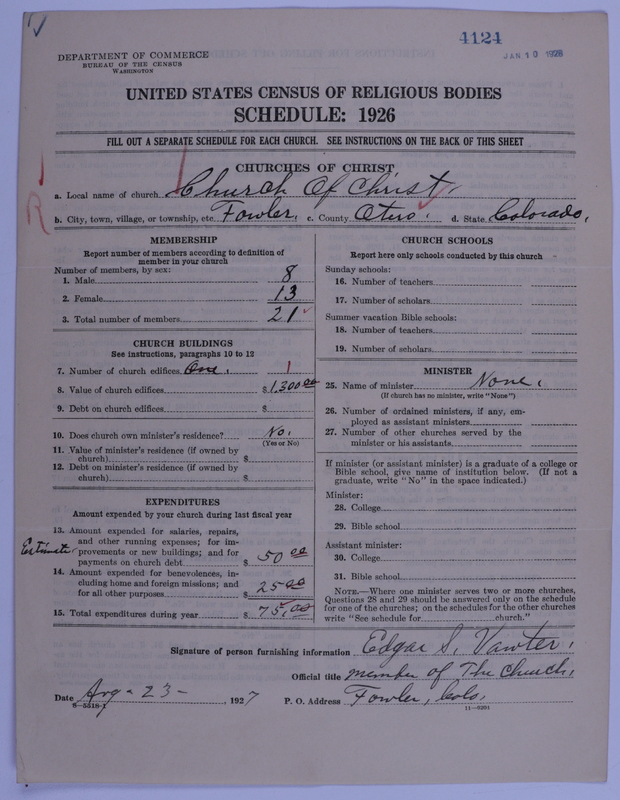 4124
JAN 10 1928
DEPARTMENT OF COMMERCE
BUREAU OF THE CENSUS
WASHINGTON
UNITED STATES CENSUS OF RELIGIOUS BODIES
SCHEDULE: 1926
FILL OUT A SEPARATE SCHEDULE FOR EACH CHURCH. SEE INSTRUCTIONS ON THE BACK OF THIS SHEET
CHURCHES OF CHRIST
a. Local name of church Church Of Christ.
b. City, town, village, or township, etc. Fowler, c. County Otero. d. State Colorado,
R
MEMBERSHIP
Report number of members according to definition of
member in your church
Number of members, by sex:
1. Male 8
2. Female 13
3. Total number of members 21
CHURCH BUILDINGS
See instructions, paragraphs 10 to 12
7. Number of church edifices One. 1
8. Value of church edifices $1,300 00
9. Debt on church edifices $
10. Does church own minister's residence? No.
(Yes or No)
11. Value of minister's residence (if owned by
church) $
12. Debt on minister's residence (if owned by
church) $
EXPENDITURES
Amount expended by your church during last fiscal year
13. Amount expended for salaries, repairs,
and other running expenses; for im-
Estimate
provements or new buildings; and for
payments on church debt $ 50 00
14. Amount expended for benevolences, in-
cluding home and foreign missions; and
for all other purposes $ 25 00
15. Total expenditures during year $ 75,00
CHURCH SCHOOLS
Report here only schools conducted by this church
Sunday schools:
16. Number of teachers
17. Number of scholars
Summer vacation Bible schools:
18. Number of teachers
19. Number of scholars
MINISTER
25. Name of minister None.
(If church has no minister, write "None")
26. Number of ordained ministers, if any, em-
ployed as assistant ministers
27. Number of other churches served by the
minister or his assistants
If minister (or assistant minister) is a graduate of a college or
Bible school, give name of institution below. (If not a
graduate, write "No" in the space indicated.)
Minister:
28. College
29. Bible school
Assistant minister:
30. College
31. Bible school
NOTE.—Where one minister serves two or more churches,
Questions 28 and 29 should be answered only on the schedule
for one of the churches; on the schedules for the other churches
write "See schedule for church."
Signature of person furnishing information Edgar S. Vawter.
Official title member of The Church,
Date Aug - 23 - , 1927 P. O. Address Fowler, Colo.
8-5518-1
11-9291